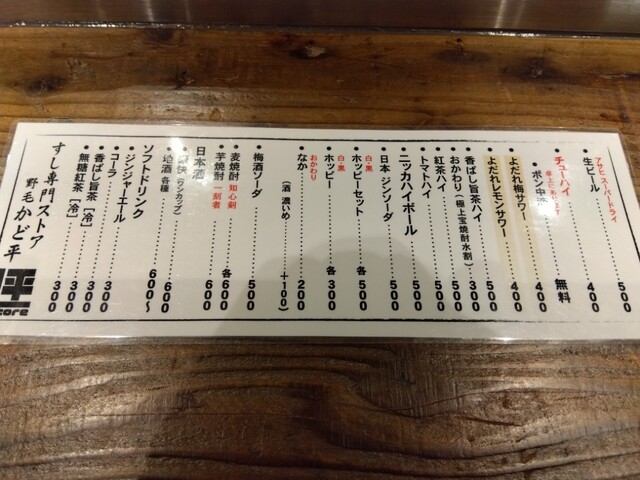 アサヒ スーパードライ
・生ビール 500
・チューハイ 無料
卓上にあります
・ポン中 400
・よだれ梅サワー 400
・よだれレモンサワー 500
・香ばし旨茶ハイ
・おかわり(極上宝焼酎水割) 300
・紅茶ハイ 500
・トマトハイ 500
・ニッカハイボール 500
・日本 ジンソーダ 500
・ホッピーセット 白・黒 各 500
・ホッピー 白・黒 各 300
・なか おかわり 200
(酒 濃いめ +100)
・梅酒ソーダ 500
・麦焼酎 知心剣 各 600
・芋焼酎 一刻者
日本酒
(ワンカップ) 600
・地酒 各種 600〜
ソフトドリンク
・ジンジャーエール
・コーラ 300
・香ばし旨茶[冷] 300
・無糖紅茶[冷] 300
すし専門ストア
野毛 かど平
core